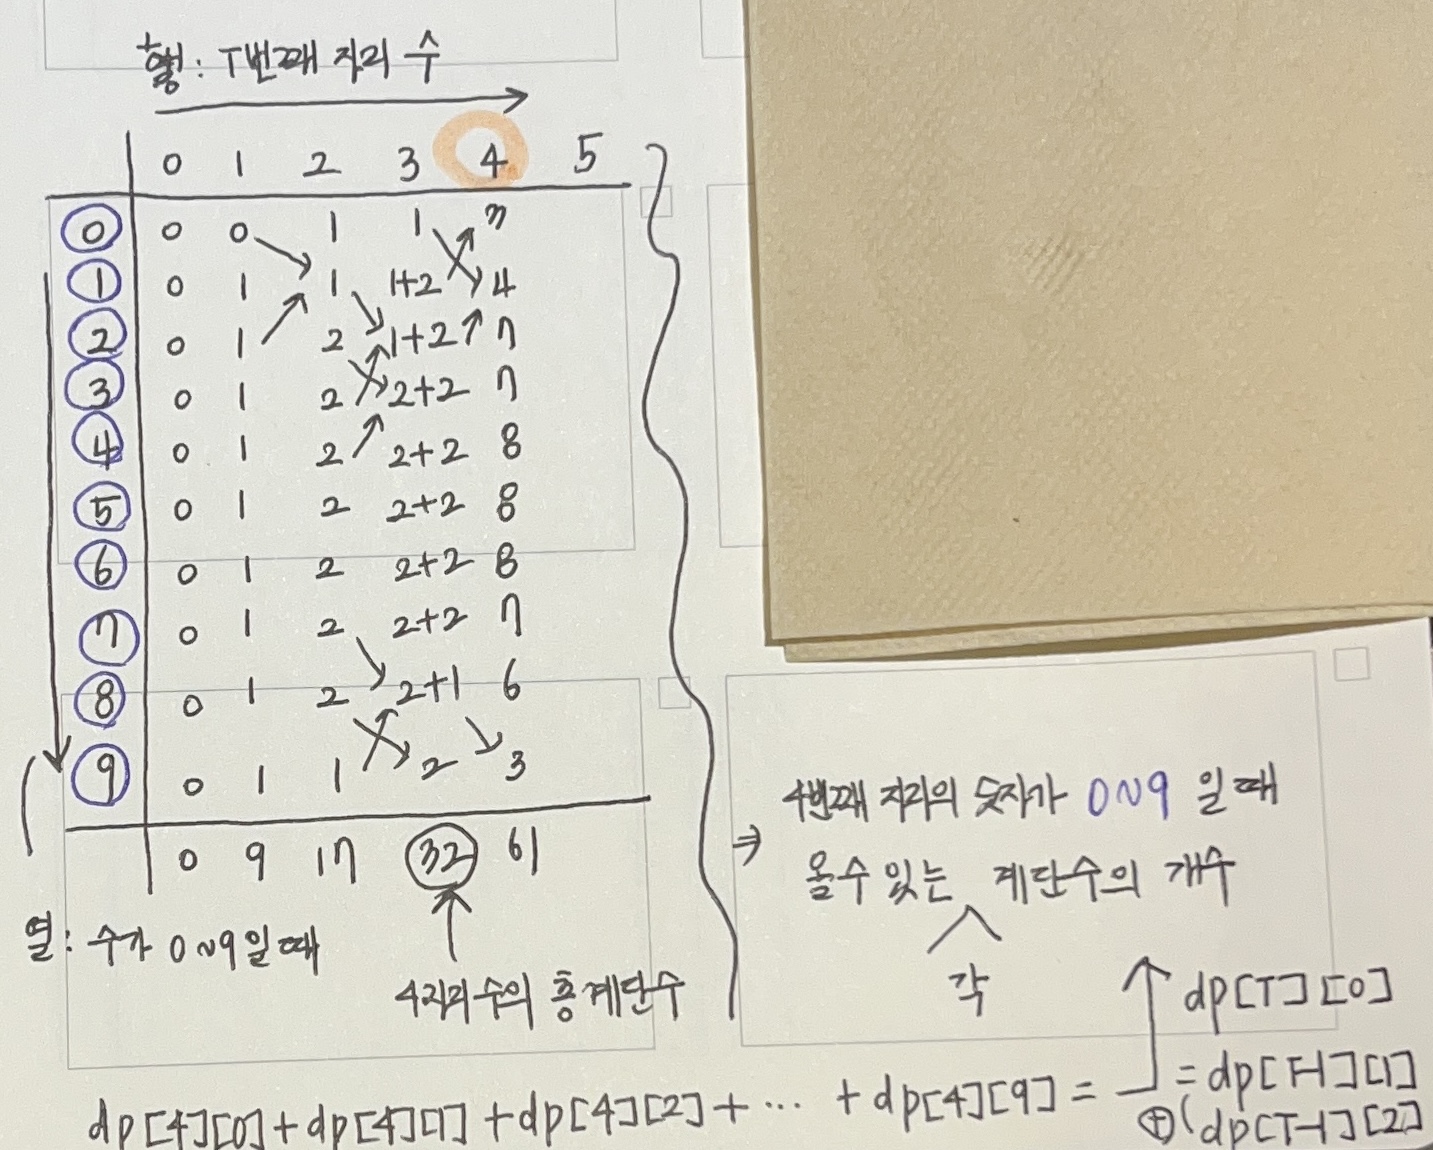 행: T번째 자리 수
0 1 2 3 4 5
0 0 0 1 1 3
1 0 1 1 1+2 4
2 0 1 2 1+2 7
3 0 1 2 2+2 7
4 0 1 2 2+2 8
5 0 1 2 2+2 8
6 0 1 2 2+2 8
7 0 1 2 2+2 7
8 0 1 2 2+1 6
9 0 1 1 2 3
0 9 17 32 61
열: 수가 0~9일 때
4자리 수의 총 계단수
⇒ 4번째 자리의 숫자가 0~9 일 때
올 수 있는 계단수의 개수
각
dp[T][0]
= dp[T-1][1]
⊕(dp[T-1][2]
dp[4][0]+dp[4][1]+dp[4][2]+… +dp[4][9]=